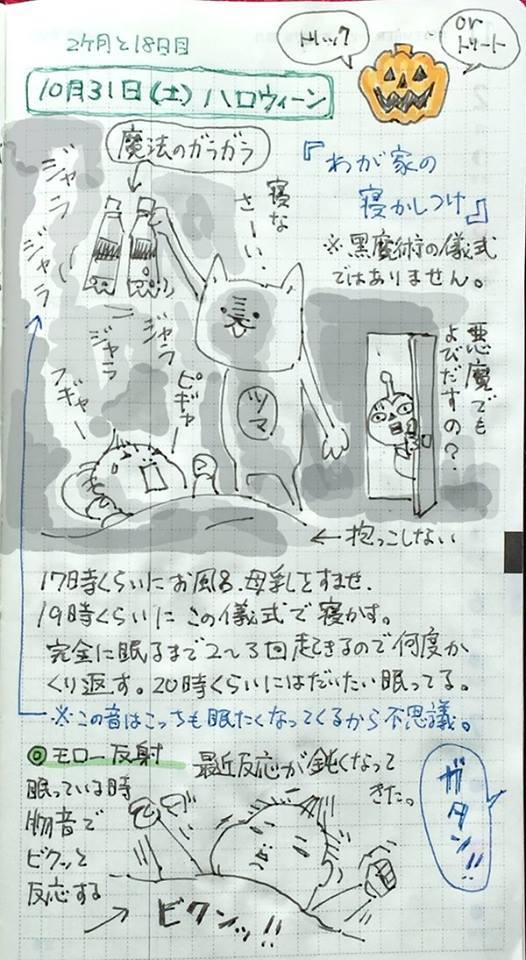 2ケ月と18日目
10月31日(土)ハロウィーン
トリック
or
トリート
魔法のガラガラ
『わが家の
寝かしつけ』
※黒魔術の儀式
ではありません。
寝な
さーい.
ジャラ
ジャラ
ジャラ
ジャラ
フギャー
ピギャー
ツマ
悪魔でも
よびだすの?
←抱っこしない
17時くらいにお風呂.母乳をすませ.
19時くらいにこの儀式で寝かす。
完全に眠るまで2〜3回起きるので何度か
くり返す。20時くらいにはだいたい眠ってる。
※この音はこっちも眠たくなってくるから不思議。
◎モロー反射
最近反応が鈍くなって
きた。
眠っている時
物音で
ビクッと
反応する
ガタン!!
ビクンッ!!